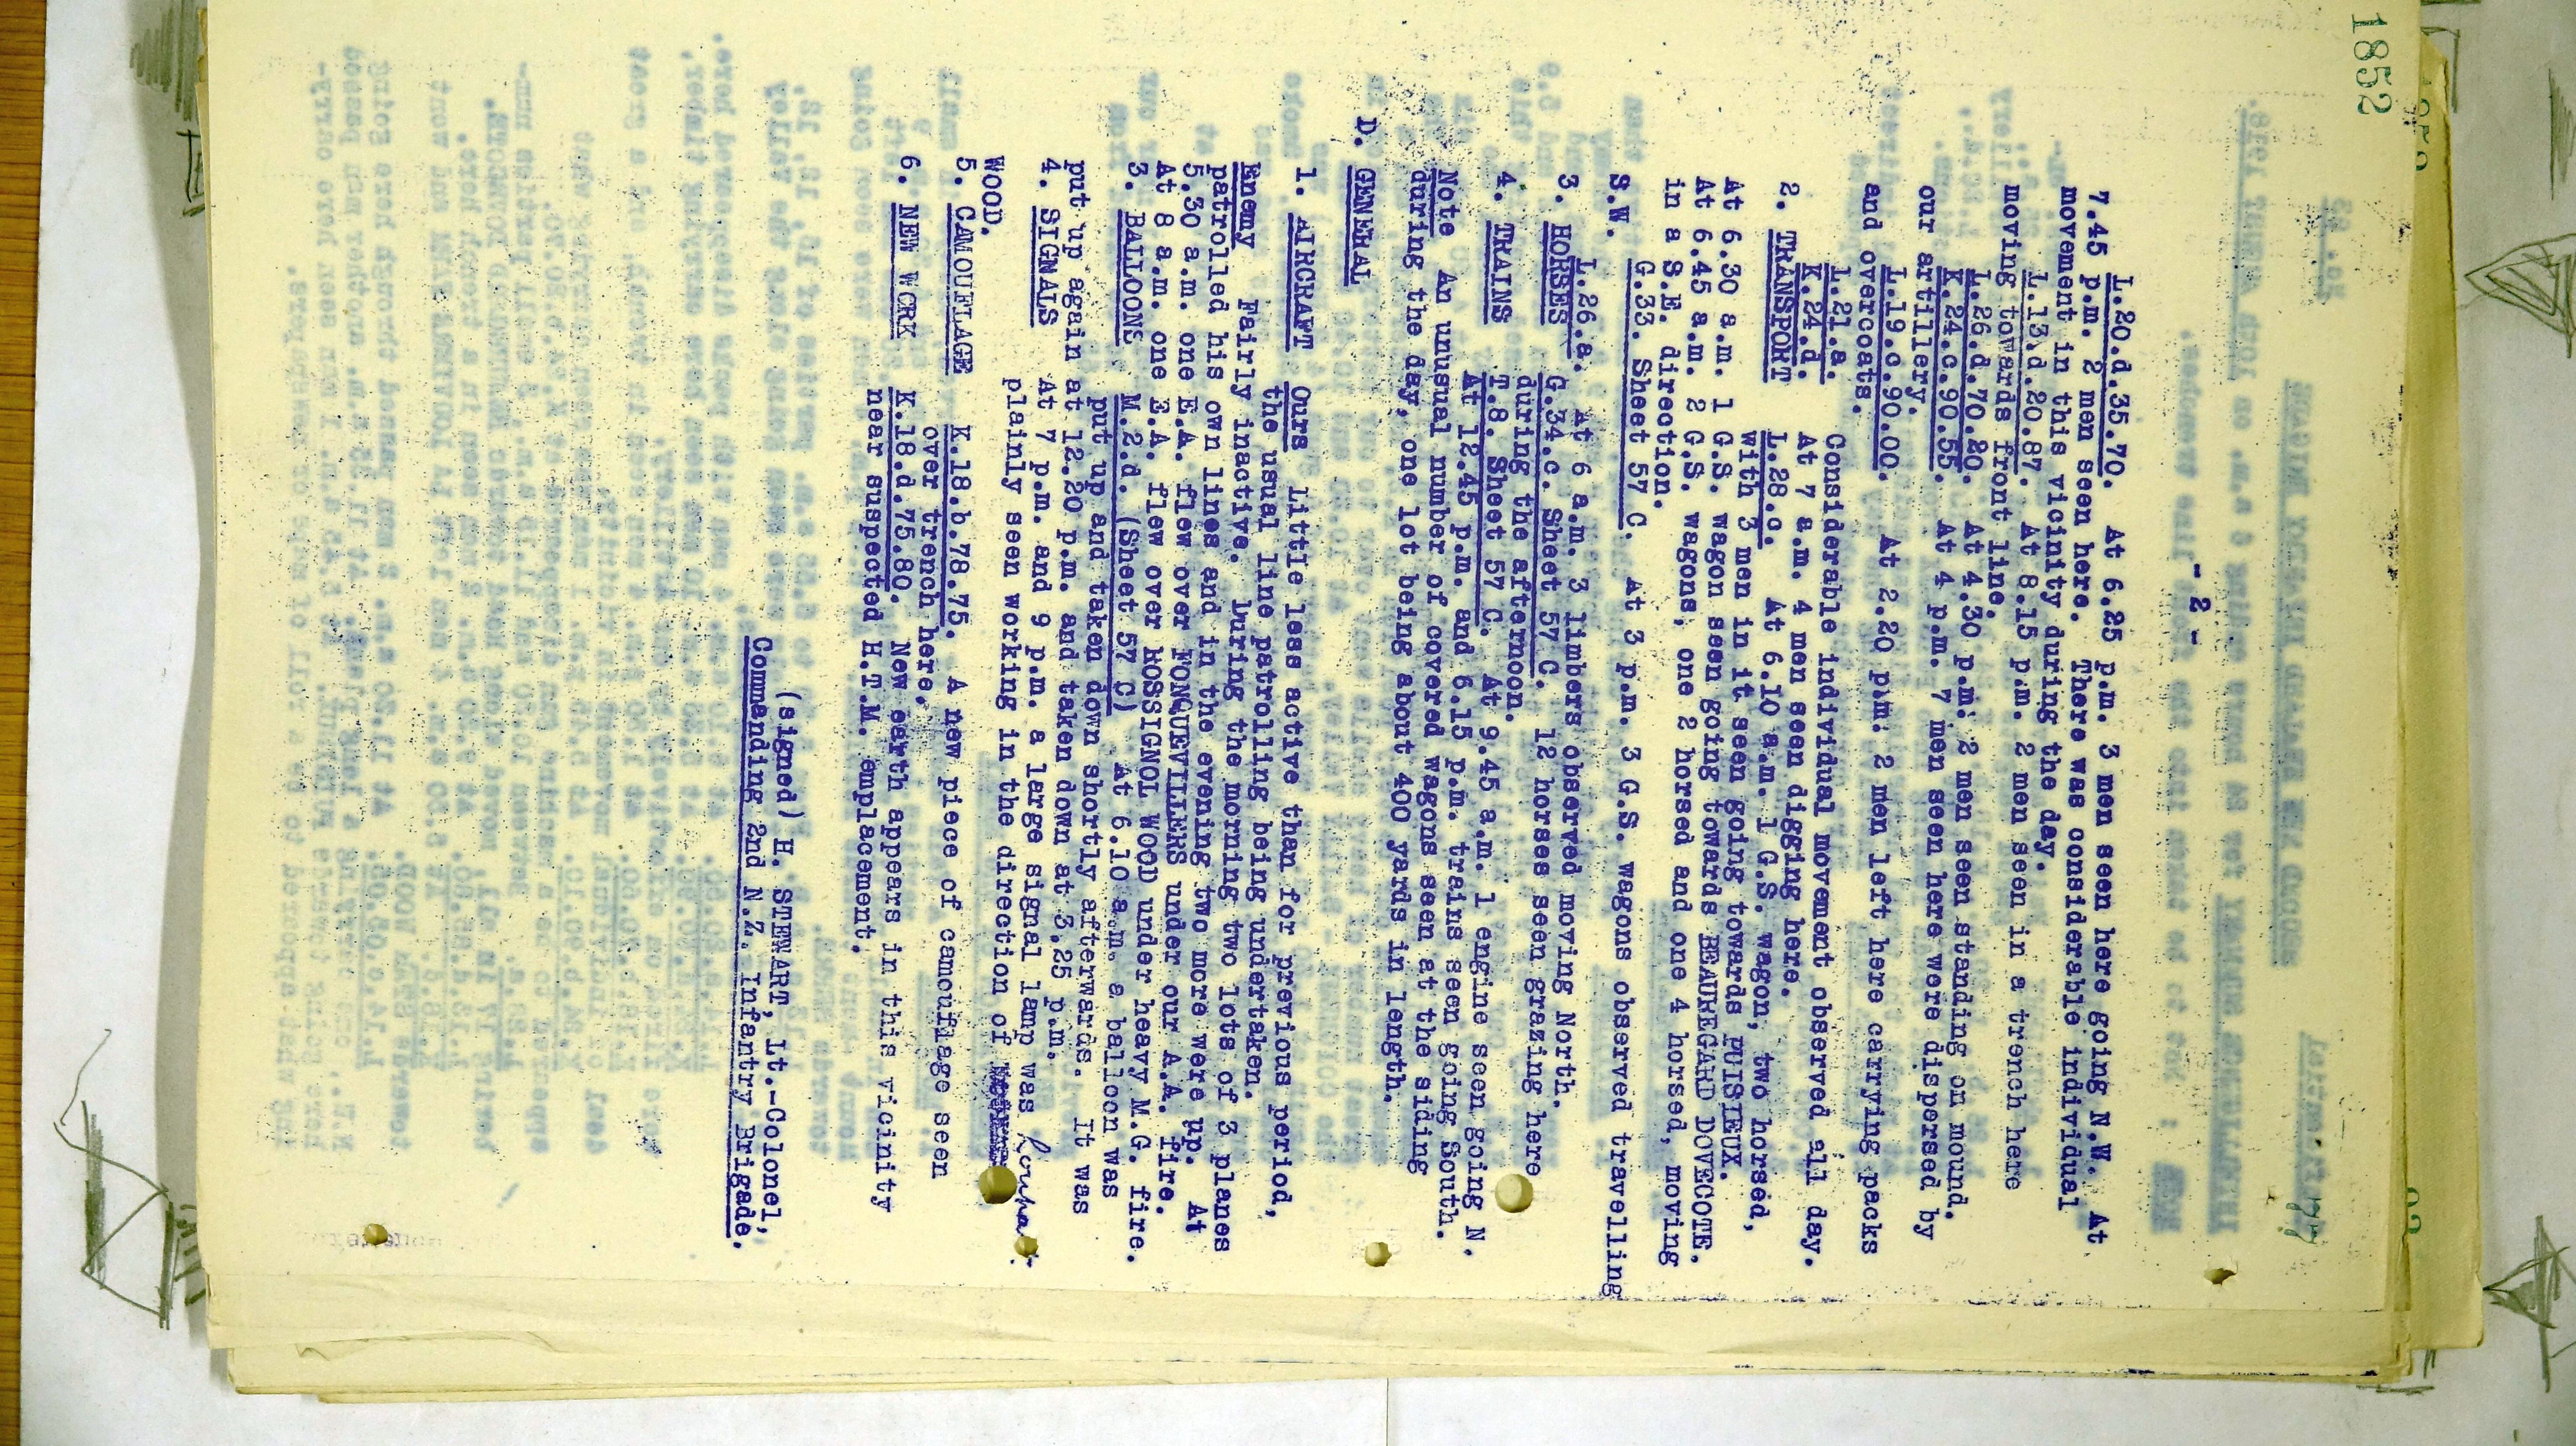 1852
- 2 -
L.20.d.35.70. At 6.25 p.m. 3 men seen here going N.W. At
7.45 p.m. 2 men seen here. There was considerable individual
movement in this vicinity during the day.
L.13.d.20.87. At 8.15 p.m. 2 men seen in a trench here
moving towards front line.
L.26.d.70.20. At 4.30 p.m. 2 men seen standing on mound.
K.24.c.90.55. At 4 p.m. 7 men seen here were dispersed by
our artillery.
L.19.c.90.00. At 2.20 p.m. 2 men left here carrying packs
and overcoats.
L.21.a. Considerable individual movement observed all day.
K.24.d. At 7 a.m. 4 men seen digging here.
2. TRANSPORT L.28.c. At 6.10 a.m. 1 G.S. wagon, two horsed,
with 3 men in it seen going towards PUISIEUX.
At 6.30 a.m. 1 G.S. wagon seen going towards BEAUREGARD DOVECOTE.
At 6.45 a.m. 2 G.S. wagons, one 2 horsed and one 4 horsed, moving
in a S.E. direction.
G.33. Sheet 57 C. At 3 p.m. 3 G.S. wagons observed travelling
S.W.
L.26.a. At 6 a.m. 3 limbers observed moving North.
3. HORSES G.34.c. Sheet 57 C. 12 horses seen grazing here
during the afternoon.
4. TRAINS T.8. Sheet 57 C. At 9.45 a.m. 1 engine seen going N.
At 12.45 p.m. and 6.15 p.m. trains seen going South.
Note An unusual number of covered wagons seen at the siding
during the day, one lot being about 400 yards in length.
D. GENERAL
1. AIRCRAFT Ours Little less active than for previous period,
the usual line patrolling being undertaken.
Enemy Fairly inactive. During the morning two lots of 3 planes
patrolled his own lines and in the evening two more were up. At
5.30 a.m. one E.A. flew over FONQUEVILLERS under our A.A. fire.
At 8 a.m. one E.A. flew over ROSSIGNOL WOOD under heavy M.G. fire.
3. BALLOONS M.2.d. (Sheet 57 C) At 6.10 a.m. a balloon was
put up and taken down shortly afterwards. It was
put up again at 12.20 p.m. and taken down at 3.25 p.m.
4. SIGNALS At 7 p.m. and 9 p.m. a large signal lamp was
plainly seen working in the direction of
WOOD.
5. CAMOUFLAGE K.18.b.78.75. A new piece of camouflage seen
over trench here.
6. NEW WORK K.18.d.75.80. New earth appears in this vicinity
near suspected H.T.M. emplacement.
(signed) H. STEWART, Lt.-Colonel,
Commanding 2nd N.Z. Infantry Brigade.